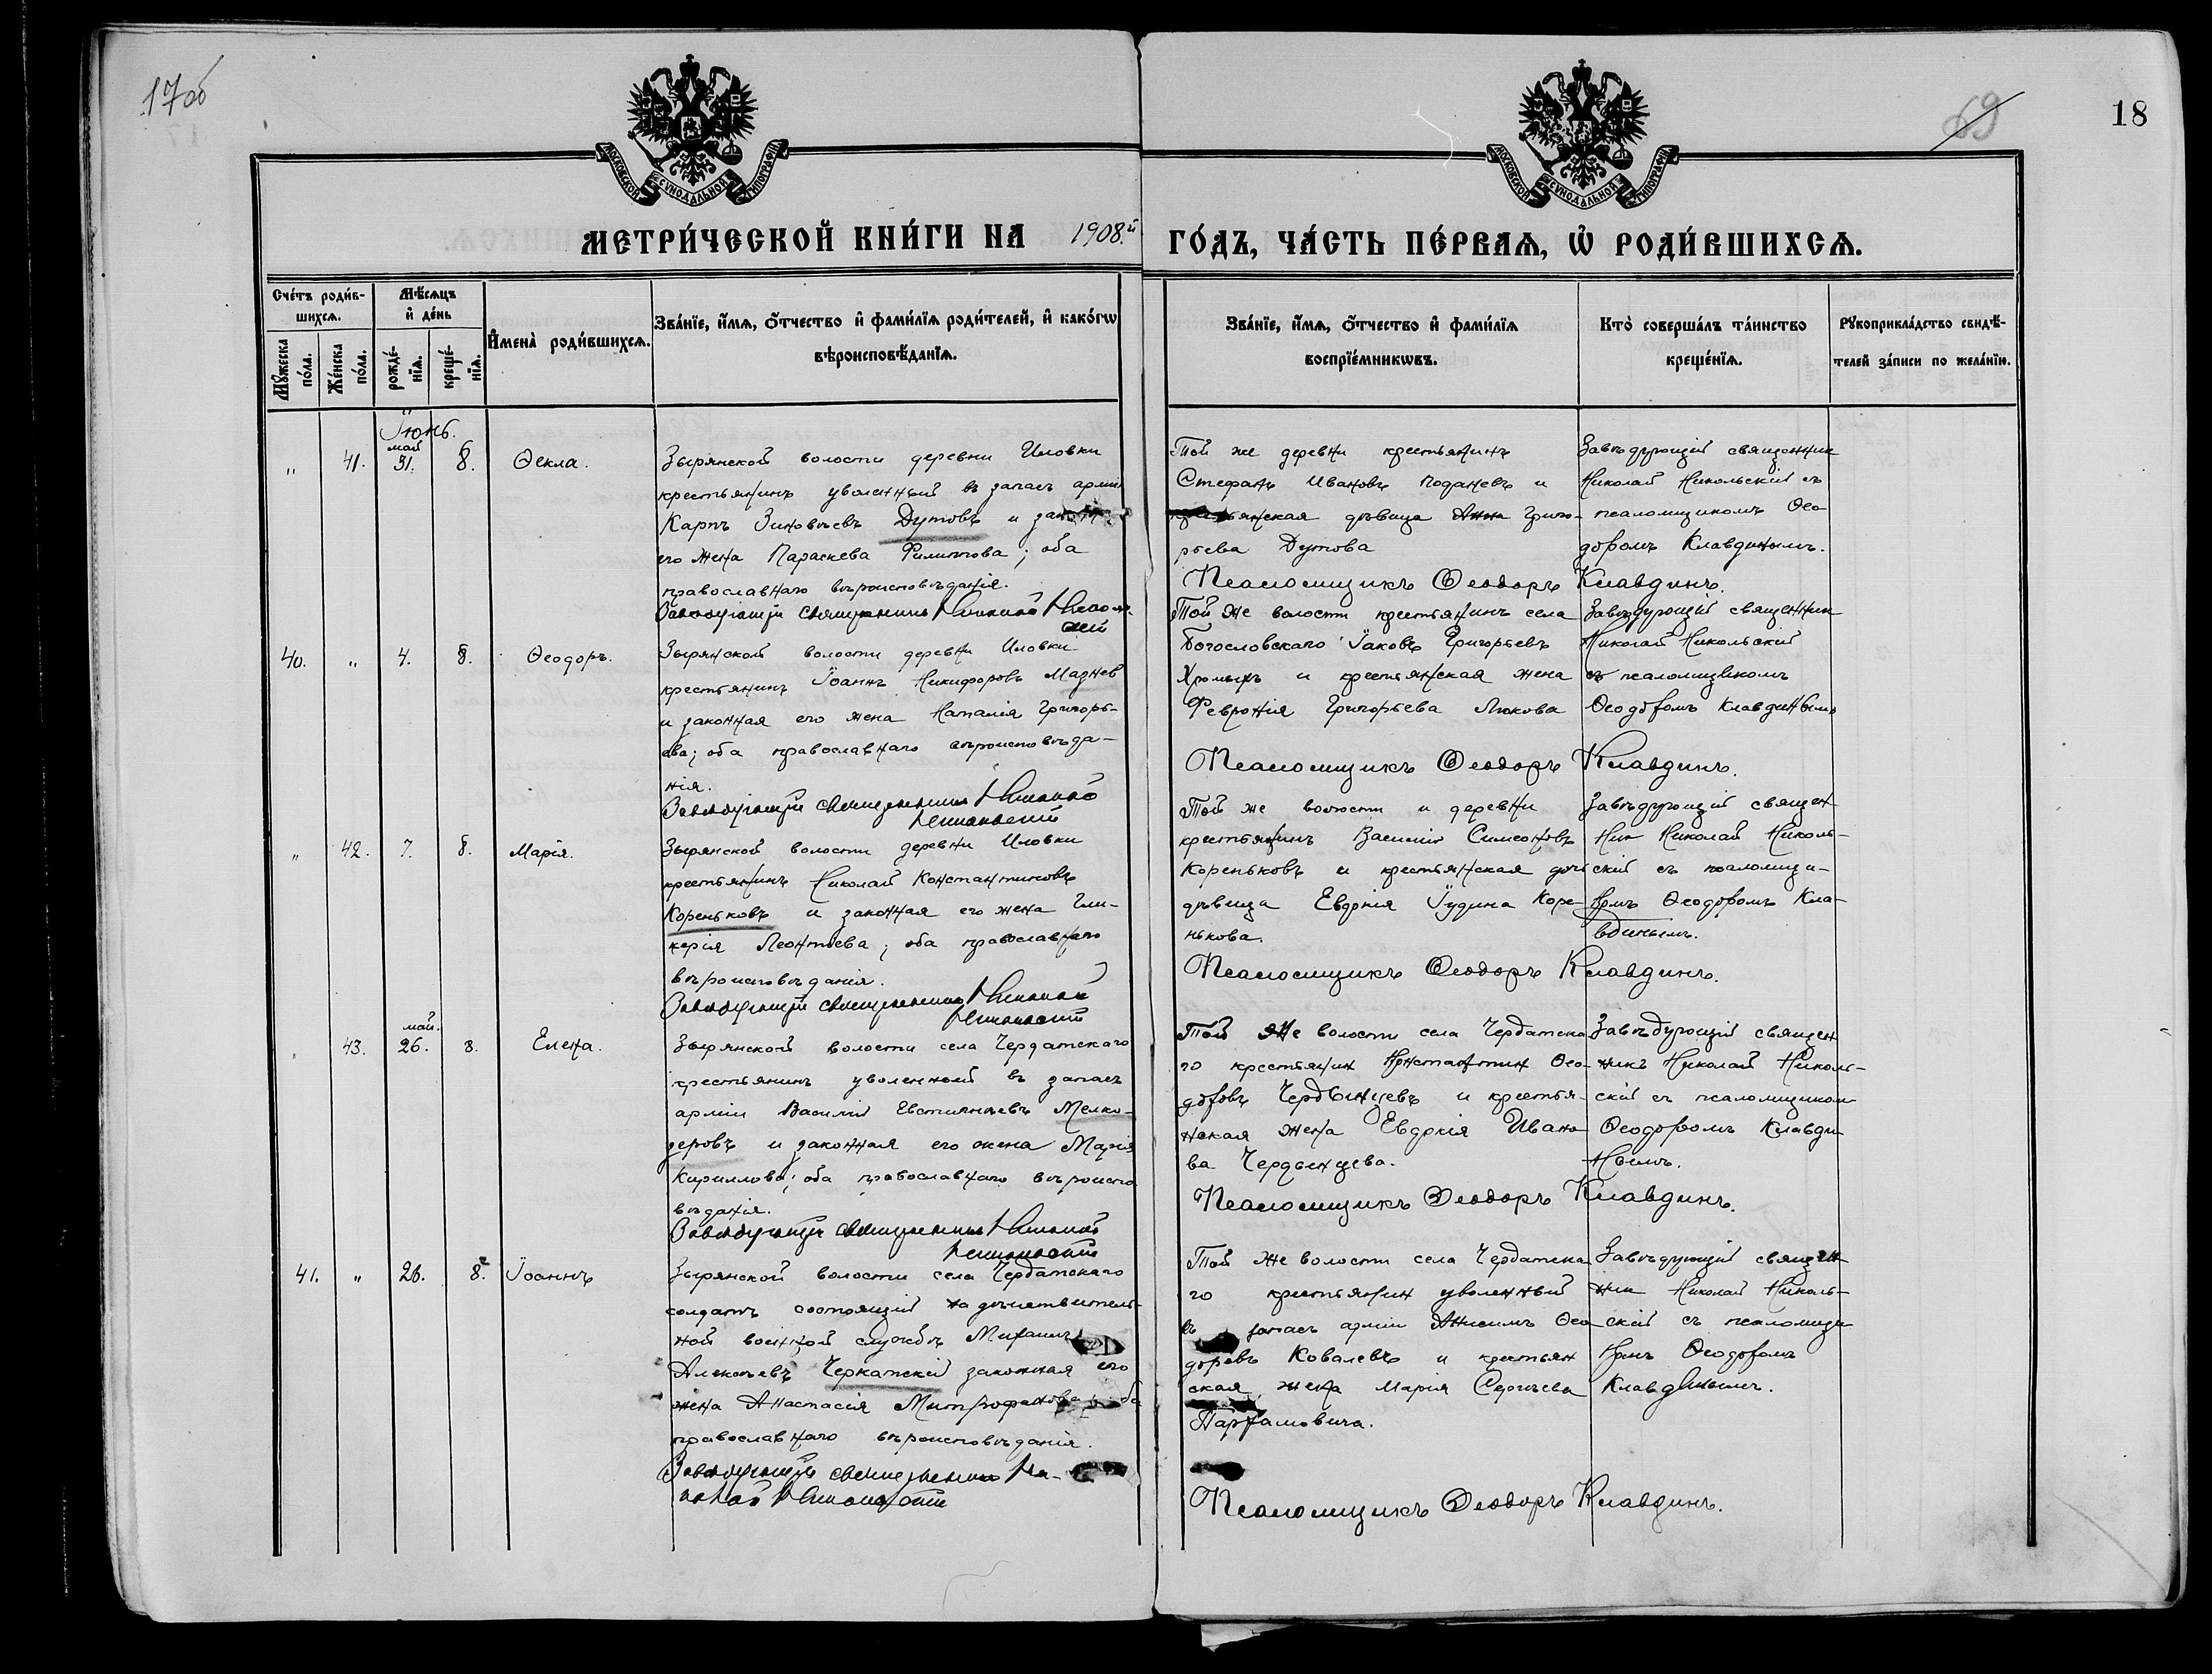 17об
69
18
МОСКОВСКОЙ СѴНОДАЛЬНОЙ ТИПОГРАФІИ
МОСКОВСКОЙ СѴНОДАЛЬНОЙ ТИПОГРАФІИ
МЕТРИ́ЧЕСКОЙ КНИ́ГИ НА 1908.й ГО́ДЪ, ЧА́СТЬ ПЕ́РВАѦ, Ѡ РОДИ́ВШИХСѦ.
Сче́тъ роди́в-
шихсѧ.
Мѣ́сѧцъ
и де́нь
Имена̀ роди́вшихсѧ.
Зва́нїе, и́мѧ, о́тчество и фами́лїѧ роди́телей, и како́гѡ
вѣроисповѣ́данїѧ.
Зва́нїе, и́мѧ, о́тчество и фами́лїѧ
воспрїе́мникѡвъ.
Кто̀ соверша́лъ та́инство
креще́нїѧ.
Рꙋкоприкла́дство свидѣ́-
телей за́писи по жела́нїю.
Мꙋ́жеска
по́ла.
Же́нска
по́ла.
рожде́-
нїѧ.
креще́-
нїѧ.
Іюнь.
май
„ 41. 31. 8. Ѳекла.
Зырянской волости деревни Иловки
крестьянинъ уволенный въ запасъ арміи
Карпъ Зиновьевъ Дутовъ и
его жена Параскева Филиппова; оба
православнаго вѣроисповѣданія.
Завѣдующій священникъ Николай
Той же деревни крестьянинъ
Стефанъ Ивановъ Поданевъ и
крестьянская дѣвица Анна Григо-
рьева Дутова
Псаломщикъ Ѳеодоръ Клавдинъ.
Завѣдующій священник
Николай Никольскій съ
псаломщикомъ Ѳео-
доромъ Клавдинымъ.
40. „ 4. 8. Ѳеодоръ.
Зырянской волости деревни Иловки
крестьянинъ Іоаннъ Никифоровъ Мазнев
и законная его жена Наталія Григорь-
ева; оба православнаго вѣроисповѣда-
нія.
Завѣдующій священникъ Николай
Никольскій
Той же волости крестьянинъ села
Богословскаго Іаковъ Григорьевъ
Хромыхъ и крестьянская жена
Февронія Григорьева Люкова
Псаломщикъ Ѳеодоръ Клавдинъ.
Завѣдующій священник
Николай Никольскій
съ псаломщикомъ
Ѳеодоромъ Клавдинымъ
„ 42. 7. 8. Марія.
Зырянской волости деревни Иловки
крестьянинъ Николай Константиновъ
Кореньковъ и законная его жена Гли-
керія Леонтьева; оба православнаго
вѣроисповѣданія.
Завѣдующій священникъ Николай
Никольскій
Той же волости и деревни
крестьянинъ Василій Симеоновъ
Кореньковъ и крестьянская дочь
дѣвица Евдокія Іудина Коре-
нькова.
Псаломщикъ Ѳеодоръ Клавдинъ.
Завѣдующій священ
ник Николай Николь-
скій съ псаломщи-
комъ Ѳеодоромъ Кла-
вдинымъ.
май.
„ 43. 26. 8. Елена.
Зырянской волости села Чердатскаго
крестьянинъ уволенной въ запасъ
арміи Василій Евстигнѣевъ Мелко-
зеровъ и законная его жена Марія
Кириллова; оба православнаго вѣроиспо
вѣданія.
Завѣдующій священникъ Николай
Никольскій
Той же волости села Чердатска
го крестьянин Константин Ѳео-
доровъ Чердынцевъ и крестья-
нская жена Евдокія Ивано
ва Чердынцева.
Псаломщикъ Ѳеодоръ Клавдинъ.
Завѣдующій священ
никъ Николай Николь-
скій съ псаломщиком
Ѳеодоромъ Клавди-
нымъ.
41. „ 26. 8. Іоаннъ
Зырянской волости села Чердатскаго
солдатъ состоящій на дѣйствитель-
ной военной службѣ Михаилъ
Алексѣевъ Черкатскій законная его
жена Анастасія Митрофанова;
православнаго вѣроисповѣданія.
Завѣдующій священникъ Ни-
колай Никольскій
Той же волости села Чердатска
го крестьянин уволенный
въ запасъ арміи Анисимъ Ѳео
доровъ Ковалевъ и крестьян
ская жена Марія Сергѣева
Парфамовича.
Псаломщикъ Ѳеодоръ Клавдинъ.
Завѣдующій священ-
ник Николай Николь-
скій съ псаломщи
комъ Ѳеодоромъ
Клавдинымъ.